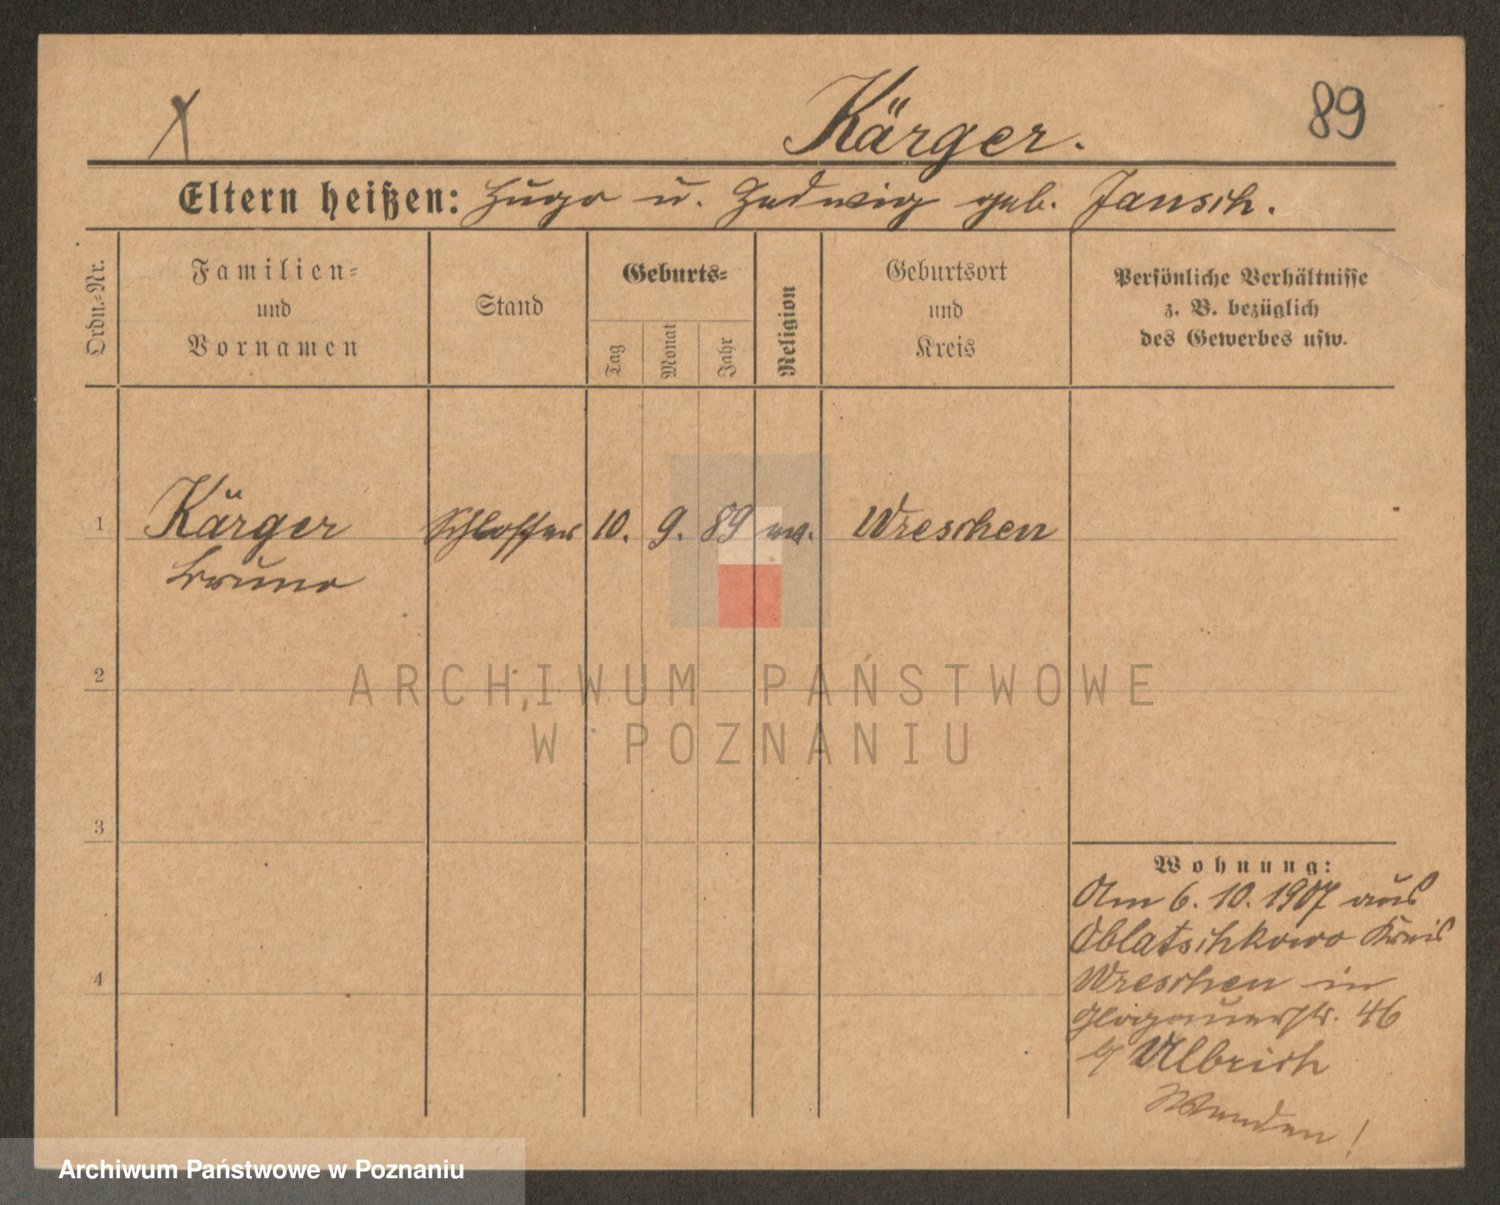 Kärger.
89
Eltern heißen: Hugo u. Hedwig geb. Jansch.
Ordn.-Nr.
Familien-
und
Vornamen
Stand
Geburts-
Tag
Monat
Jahr
Religion
Geburtsort
und
Kreis
Persönliche Verhältnisse
z. B. bezüglich
des Gewerbes usw.
1 Kärger Schlosser 10. 9. 89 ev. Wreschen
Bruno
2
ARCHIWUM PAŃSTWOWE
W POZNANIU
3
Wohnung:
Am 6. 10. 1907 aus
Oblatschkowo Kreis
4
Wreschen in
Glogauerstr. 46
b/ Ulbrich
Wenden!
Archiwum Państwowe w Poznaniu